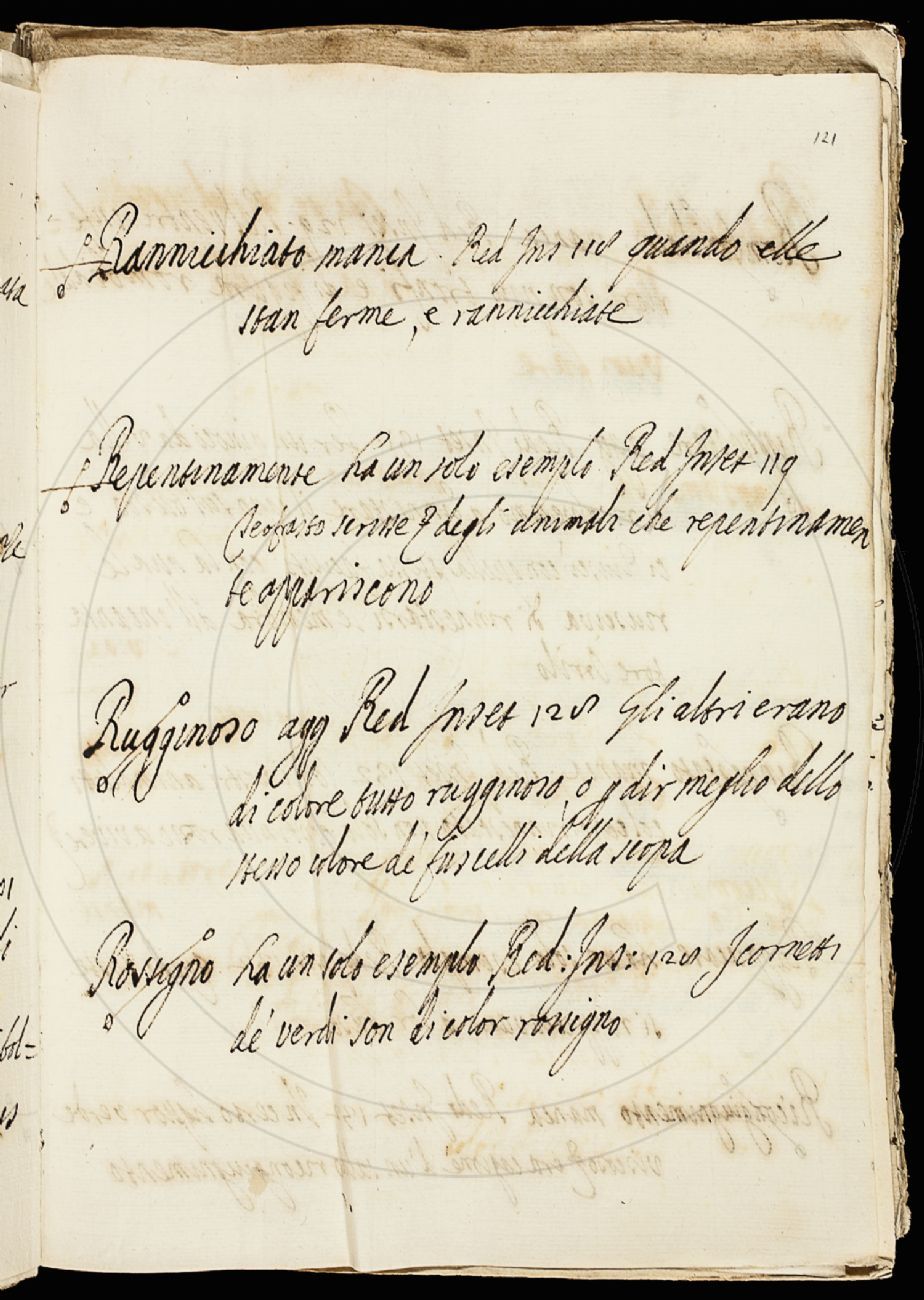 121
Rannicchiato manca. Red Ins 118 quando elle
stan ferme, e rannicchiate
Repentinamente ha un solo esemplo Red Inset 119
Teofrasto scrisse degli animali che repentinamen
te appariscono
Rugginoso agg Red Inset 128 Gli altri erano
di colore tutto rugginoso, o p dir meglio dello
stesso colore de' fuscelli della scopa
Rossigno ha un solo esemplo Red: Ins: 128 I cornetti
de' verdi son di color rossigno